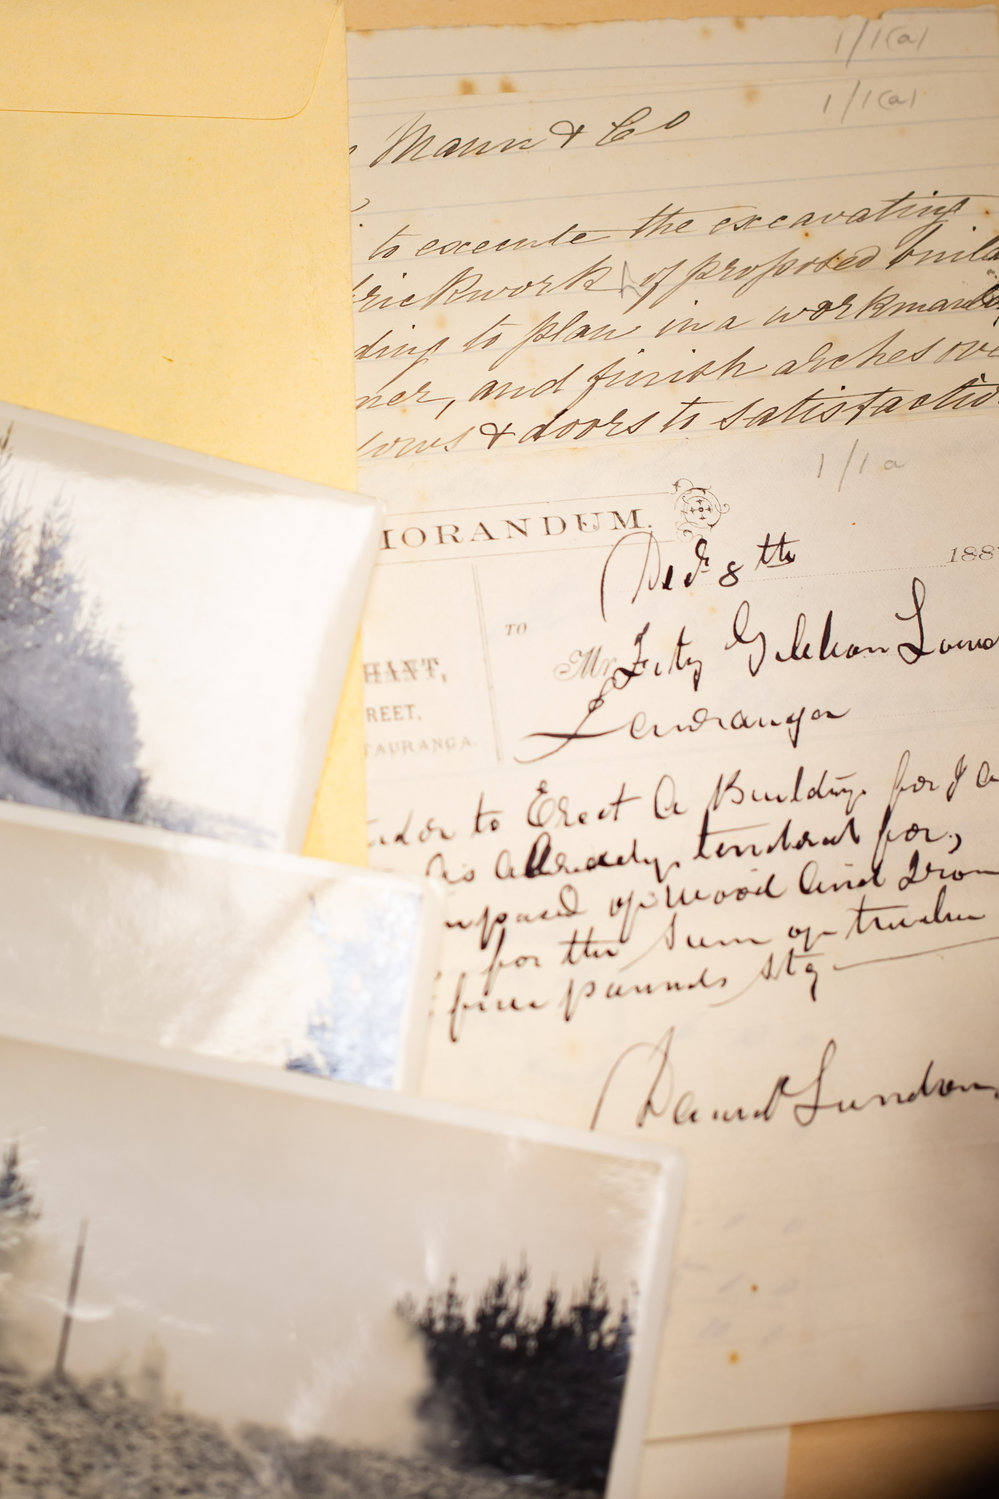 1/1(a)
1/1(a)
Mann & Co
to execute the excavating
rickwork of proposed build
ding to plan in a workmanly
ner, and finish arches ove
dows & doors to satisfactio
1/1a
MORANDUM.
Dec 8th
188
TO
Mr Fitz
HANT,
REET,
TAURANGA.
Tauranga
nder to Erect A Building for
As Already tendered for,
mposed of wood And Iron
for the Sum of twelve
five pounds stg
David Lundon